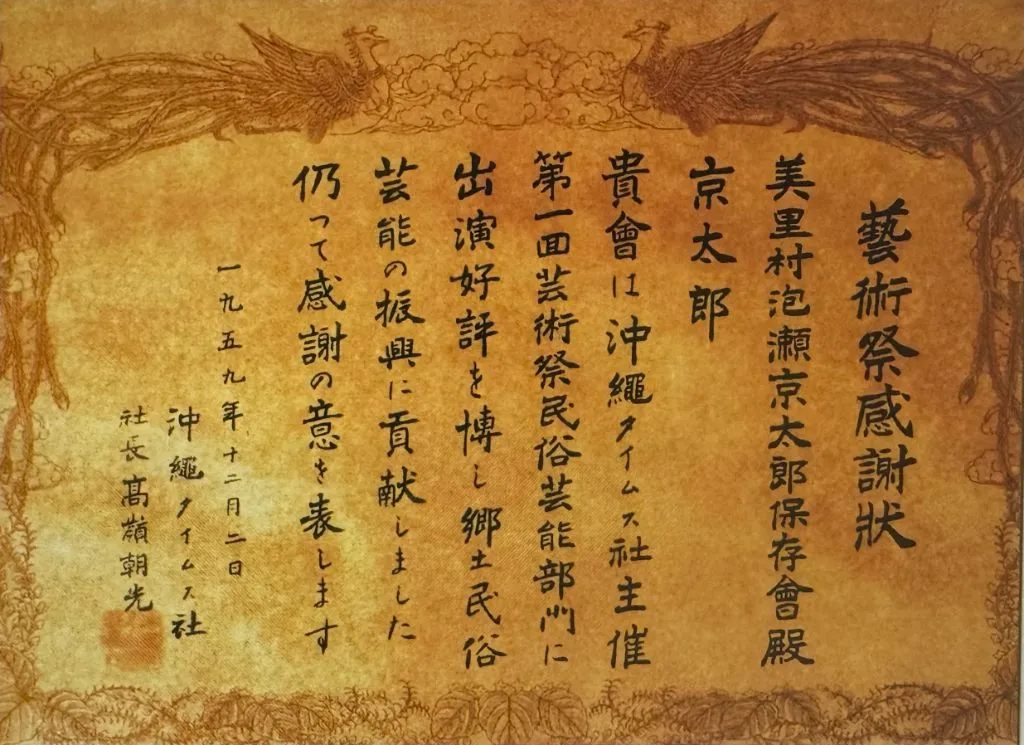 藝術祭感謝狀
美里村泡瀬京太郎保存會殿
京太郎
貴會は沖繩タイムス社主催
第一回芸術祭民俗芸能部門に
出演好評を博し郷土民俗
芸能の振興に貢献しました
仍つて感謝の意を表します
一九五九年十二月二日
沖繩タイムス社
社長高嶺朝光